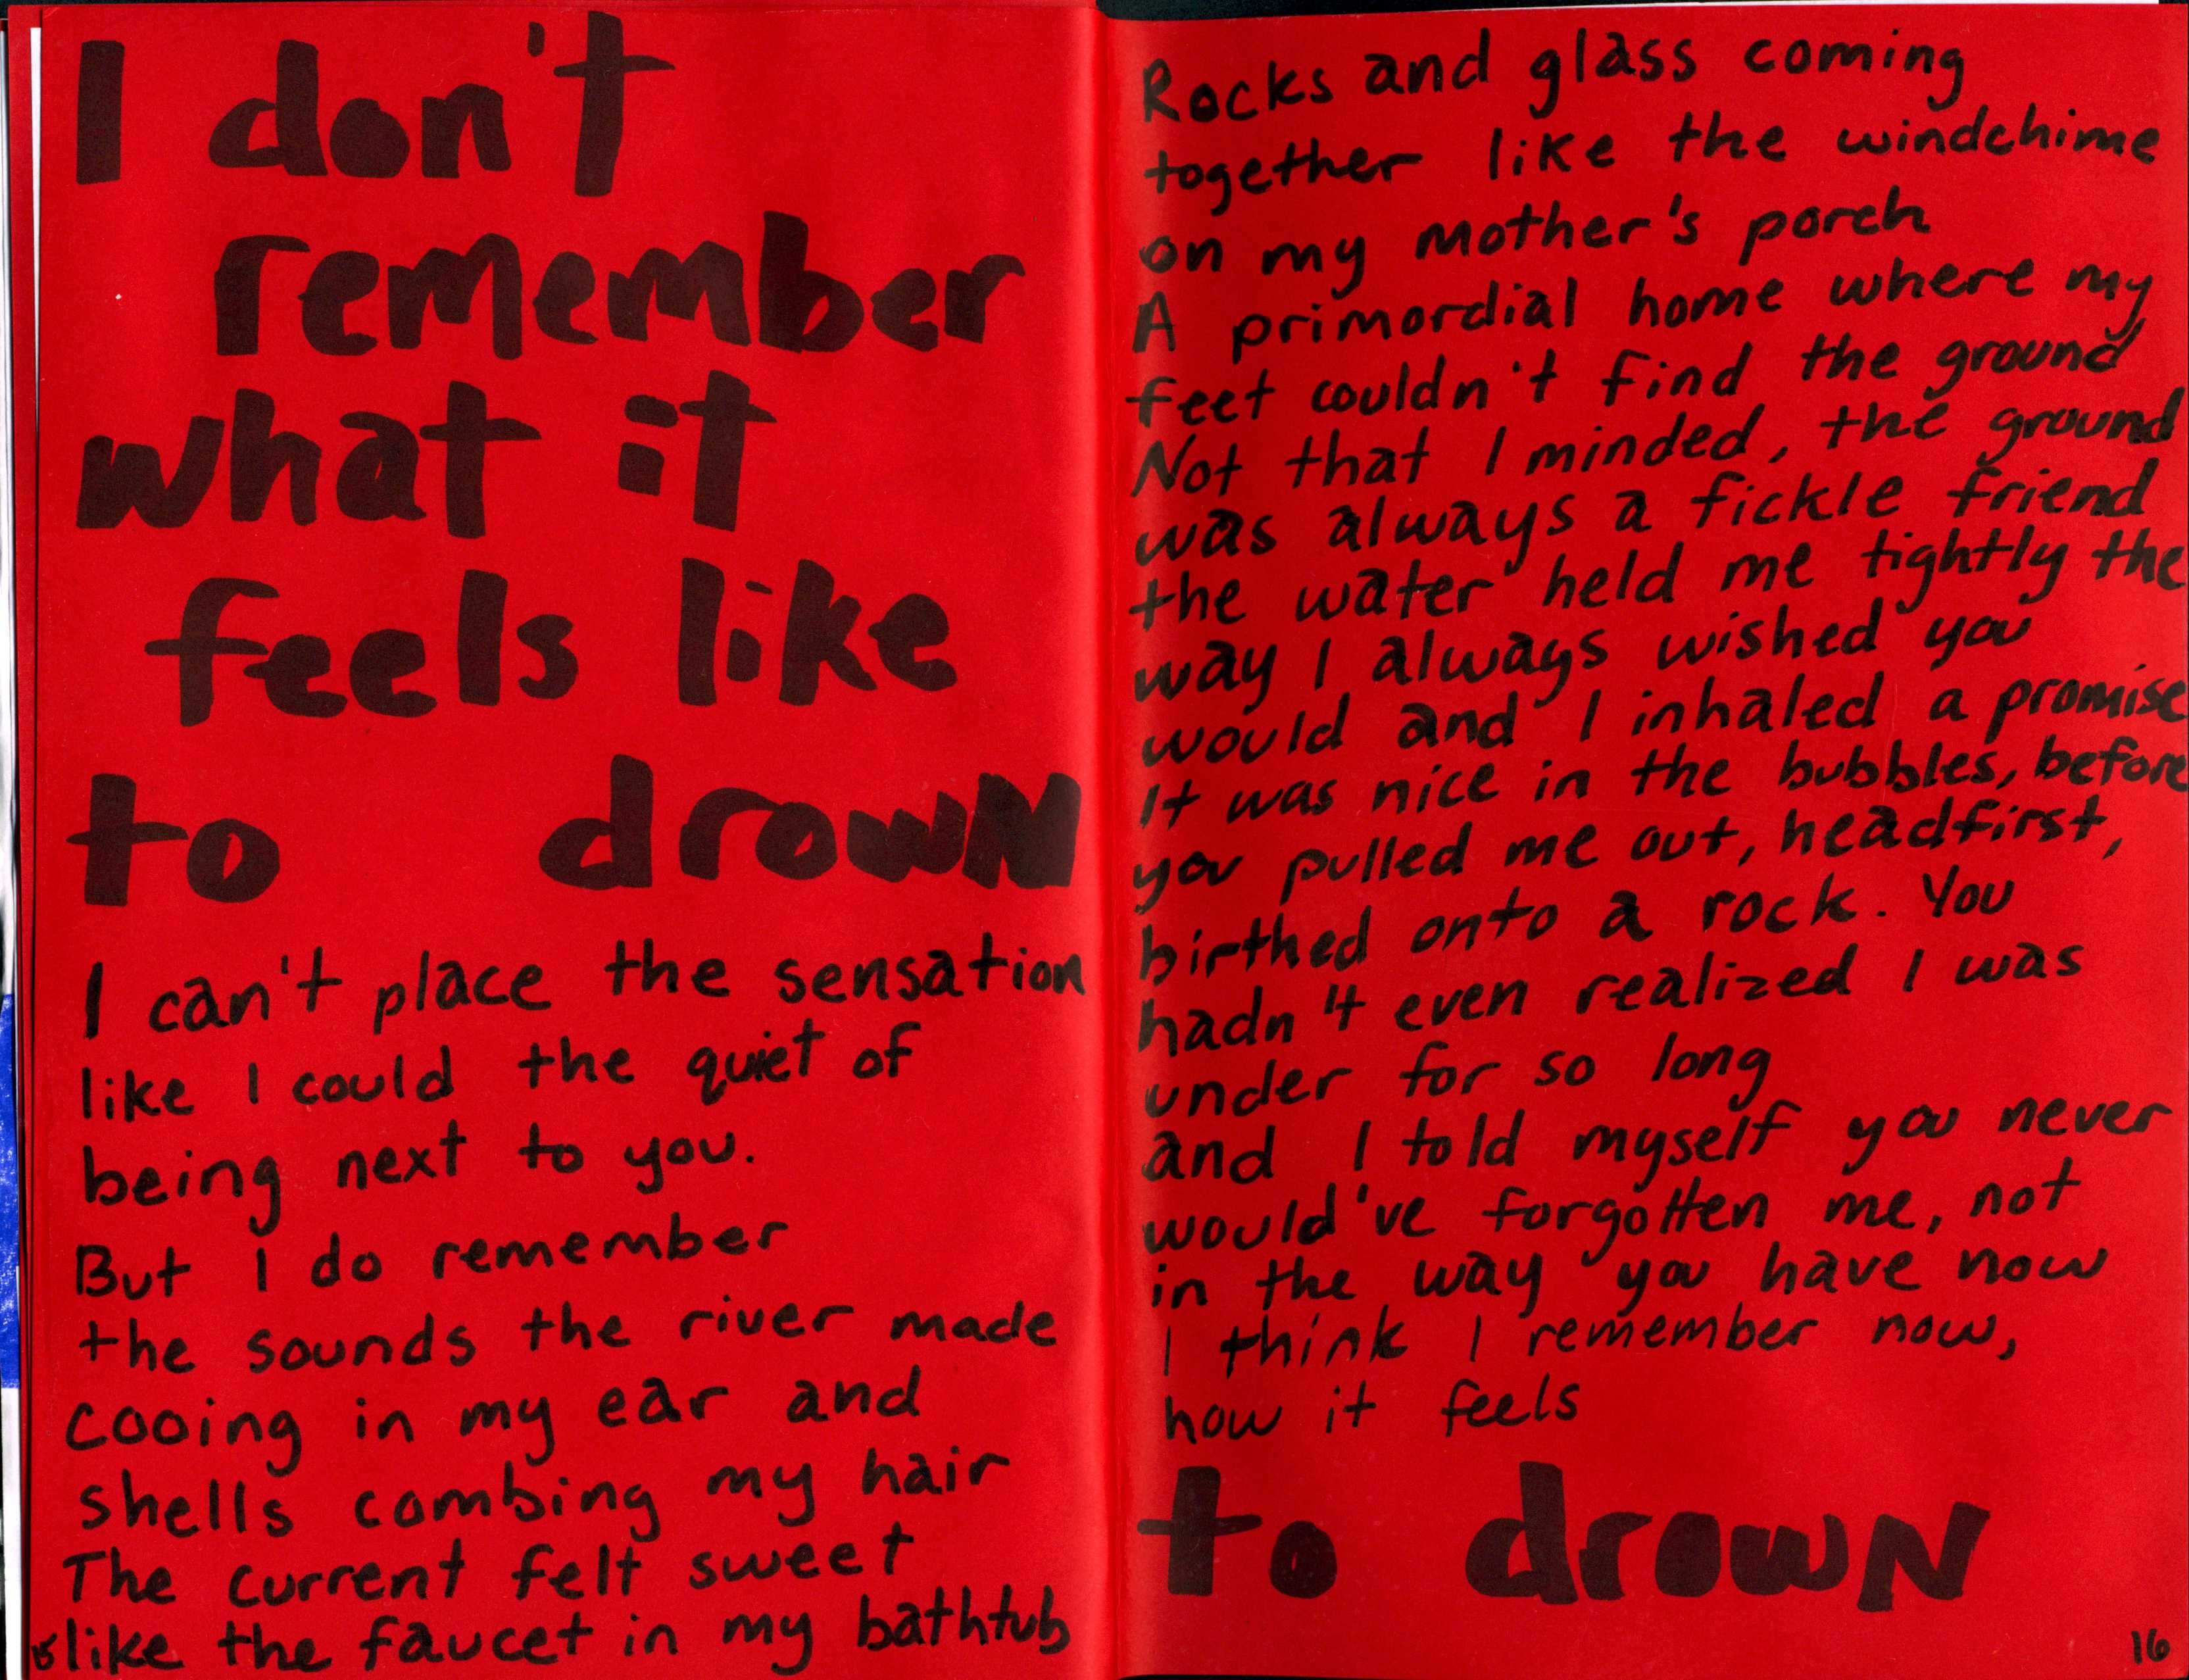 I don't
remember
what it
feels like
to drown
I can't place the sensation
like I could the quiet of
being next to you.
But I do remember
the sounds the river made
cooing in my ear and
shells combing my hair
The current felt sweet
like the faucet in my bathtub
15
Rocks and glass coming
together like the windchime
on my mother's porch
A primordial home where my
feet couldn't find the ground
Not that I minded, the ground
was always a fickle friend
the water held me tightly the
way I always wished you
would and I inhaled a promise
It was nice in the bubbles, before
you pulled me out, headfirst,
birthed onto a rock. You
hadn't even realized I was
under for so long
and I told myself you never
would've forgotten me, not
in the way you have now
I think I remember now,
how it feels
to drown
16